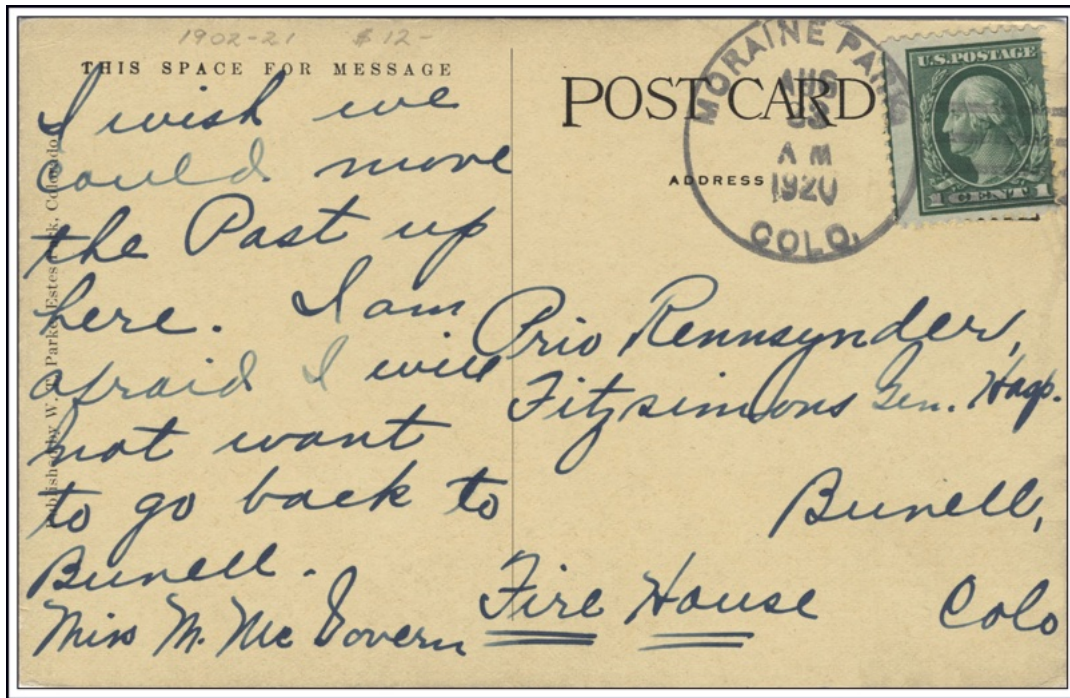 1902-21 $12-
THIS SPACE FOR MESSAGE
I wish we
could move
the Post up
here. I am
afraid I will
not want
to go back to
Bunell.
Miss M. Mc Govern
Published by W. T. Parke, Estes Park, Colorado
POST CARD
ADDRESS
MORAINE PARK
AUG
A M
1920
COLO.
U.S. POSTAGE
1 CENT 1
Prio Rennsynder,
Fitzsimons Gen. Hosp.
Bunell,
Fire House Colo